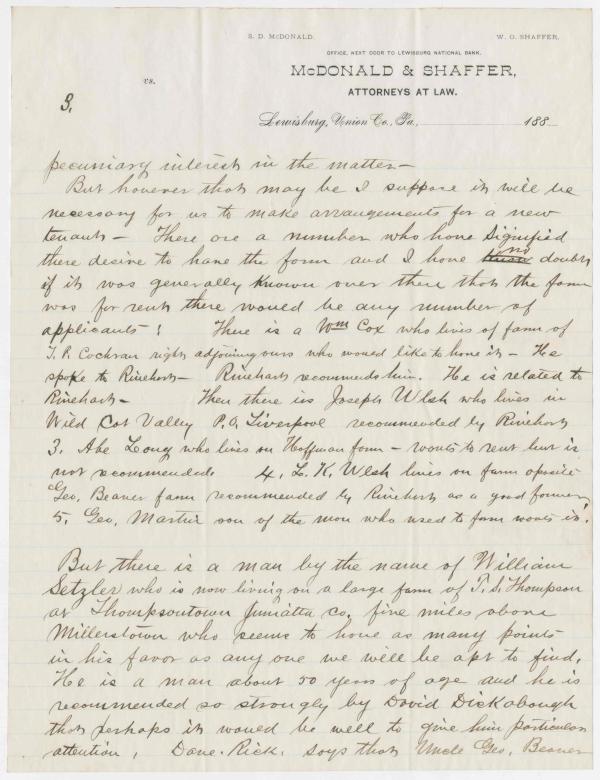 S. D. McDONALD. W. O. SHAFFER.
OFFICE, NEXT DOOR TO LEWISBURG NATIONAL BANK.
McDONALD & SHAFFER,
ATTORNEYS AT LAW.
vs.
3.
Lewisburg, Union Co., Pa., 188
pecuniary interest in the matter—
But however that may be I suppose it will be
necessary for us to make arrangements for a new
tenant — There are a number who have signified
there desire to have the farm and I have no doubt
if it was generally known over there that the farm
was for rent there would be any number of
applicants! There is a Wm Cox who lives of farm of
T. P. Cochran right adjoining ours who would like to have it — He
spoke to Rinehart — Rinehart recommends him. He is related to
Rinehart — Then there is Joseph Ulsh who lives in
Wild Cat Valley P.O. Liverpool recommended by Rinehart
3. Abe Long who lives on Hoffman farm — wants to rent but is
not recommended. 4. L. K. Ulsh lives on farm oposite
Geo. Beaver farm recommended by Rinehart as a good farmer
5. Geo. Martin son of the man who used to farm wants it.
But there is a man by the name of William
Setzler who is now living on a large farm of T. S. Thompson
at Thompsontown Juniatta co. five miles above
Millerstown who seems to have as many points
in his favor as any one we will be apt to find.
He is a man about 50 years of age and he is
recommended so strongly by David Dickabough
that perhaps it would be well to give him particular
attention. Dave. Rick. says that Uncle Geo. Beaver